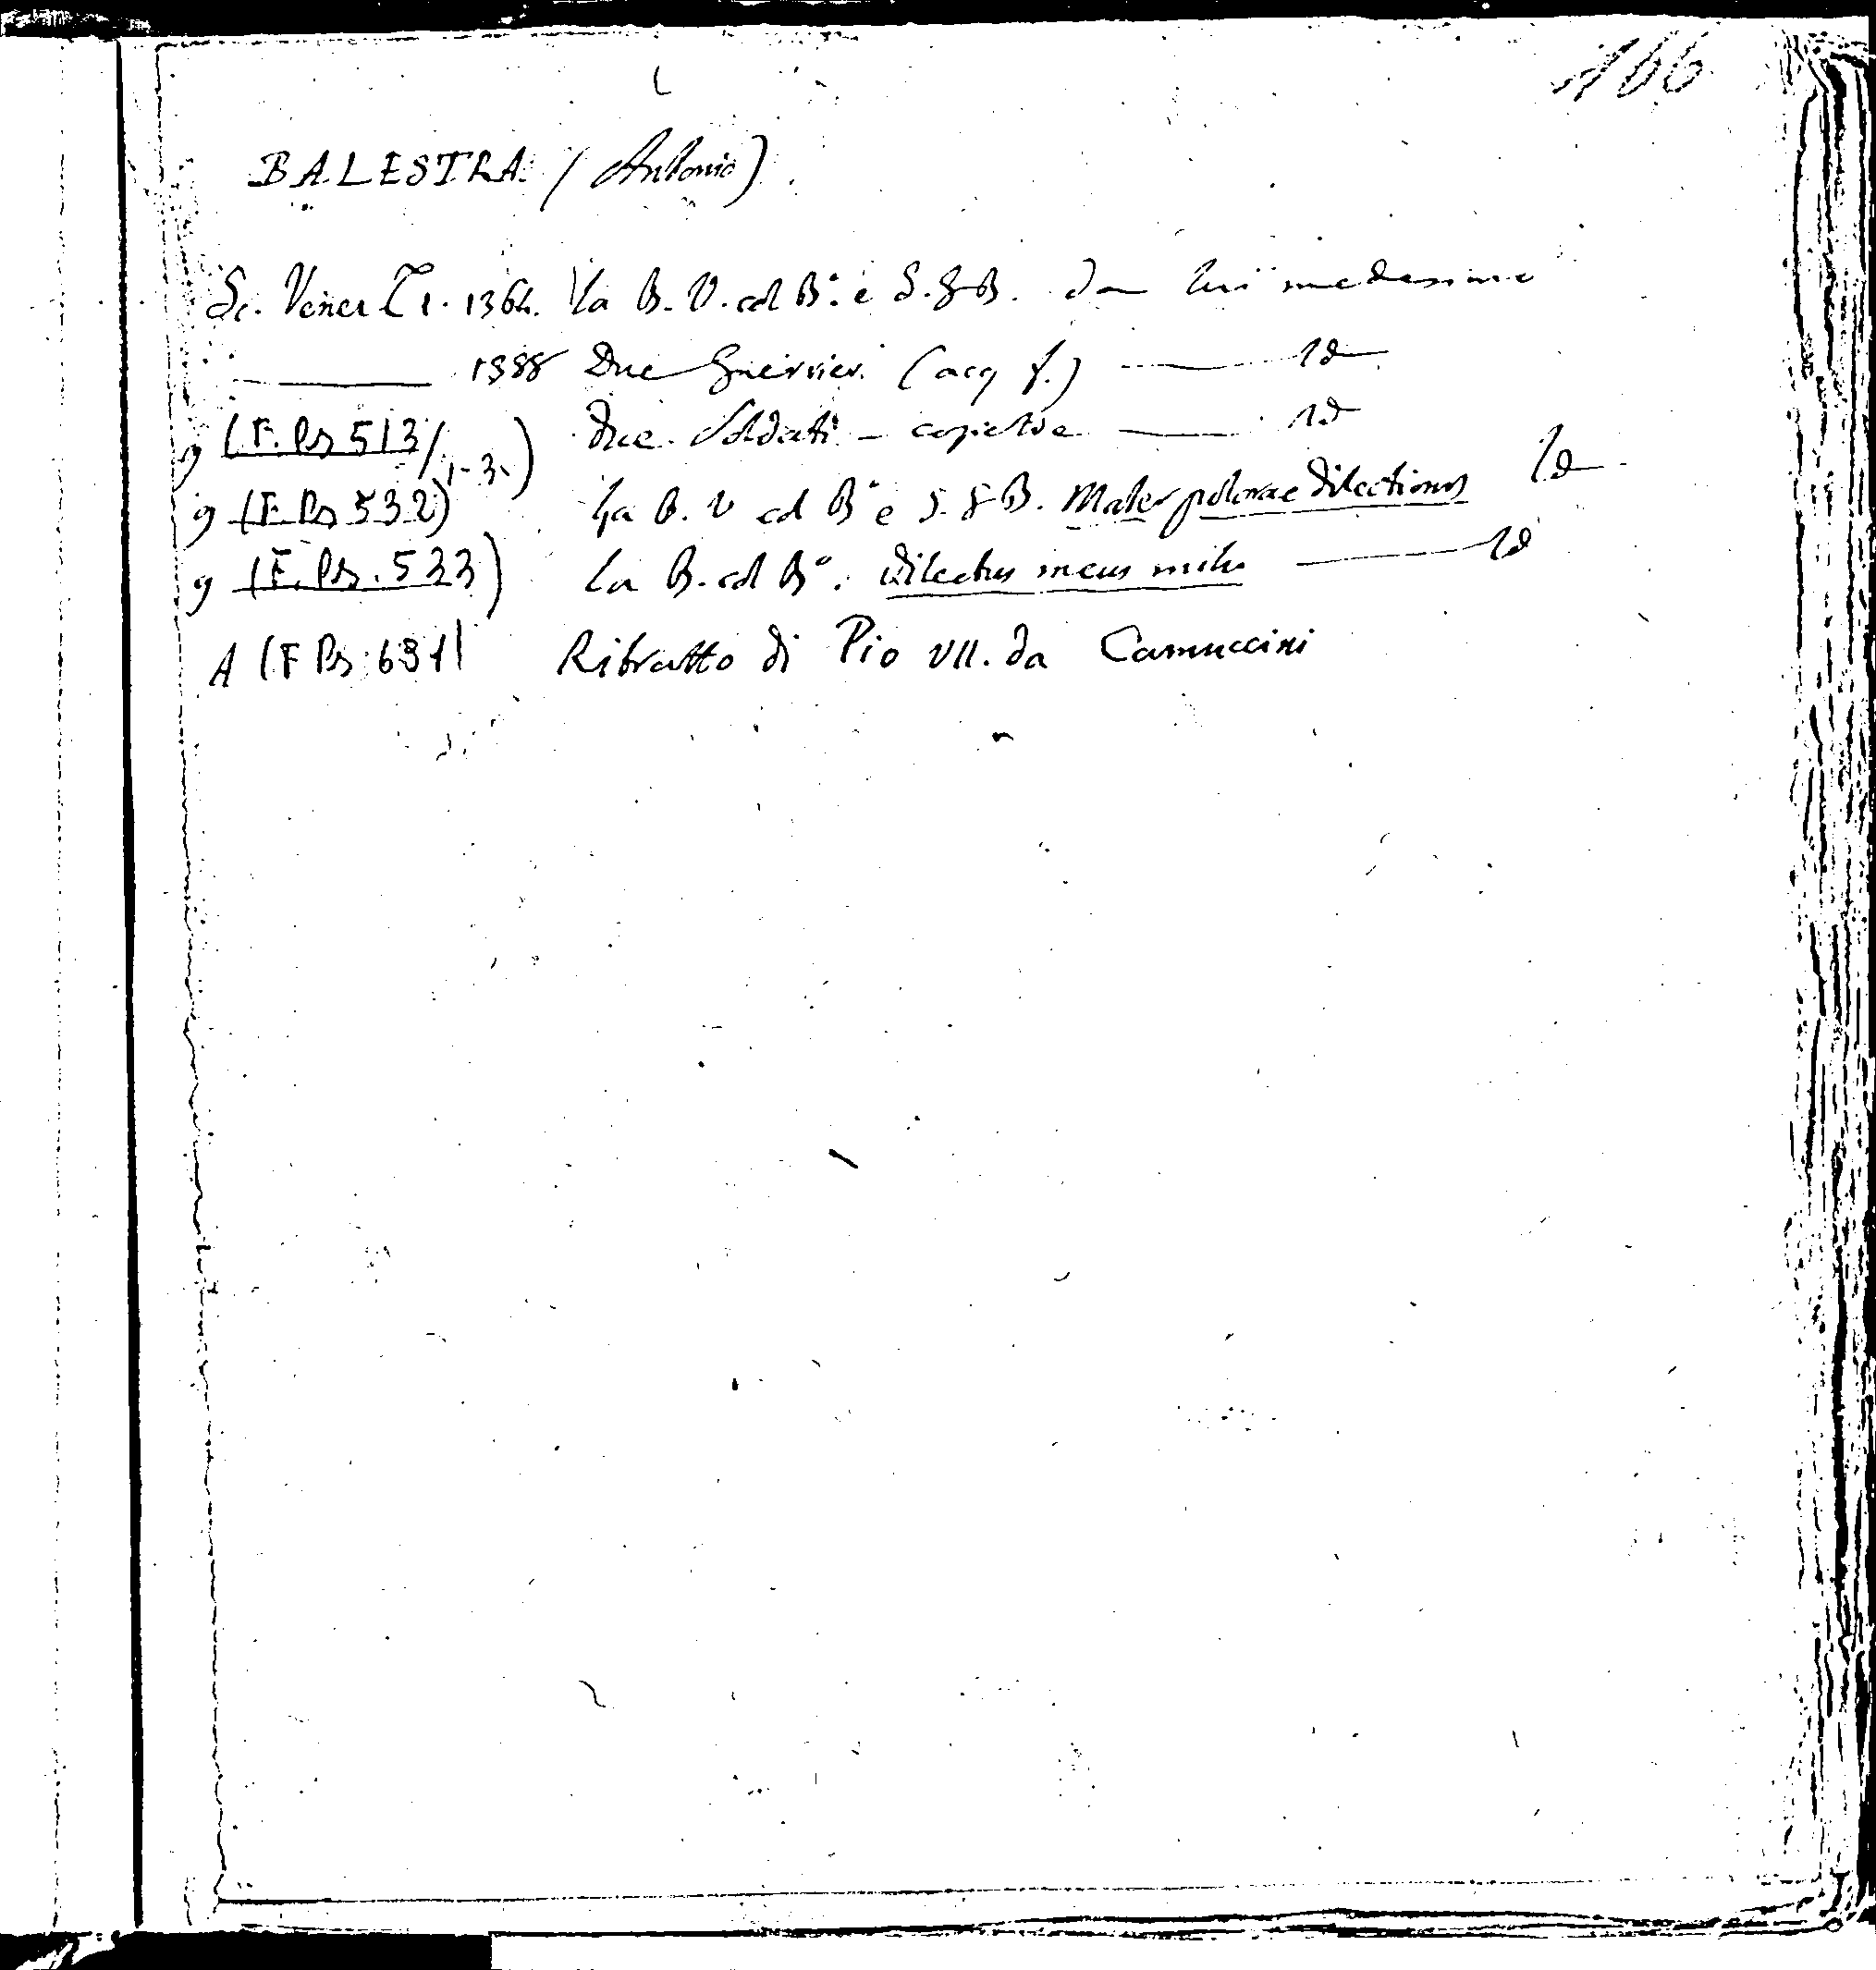 166
BALESTRA (Antonio)
Sc. Venez T 1. 1364. La B. V. col B.º e S. G B. da lui medesimo
1388 Due Guerrieri (acq f.) — Id
g (F. Ps 513/1-3.) due Soldati — — Id
g (F. Ps 532) La B. V col Bº e S. G B. Mater pulcrae dilectionis Id
g (F. Ps. 533) La B. col Bº. Dilectus meus mihi — Id
A (F Ps 631) Ritratto di Pio VII. da Camuccini